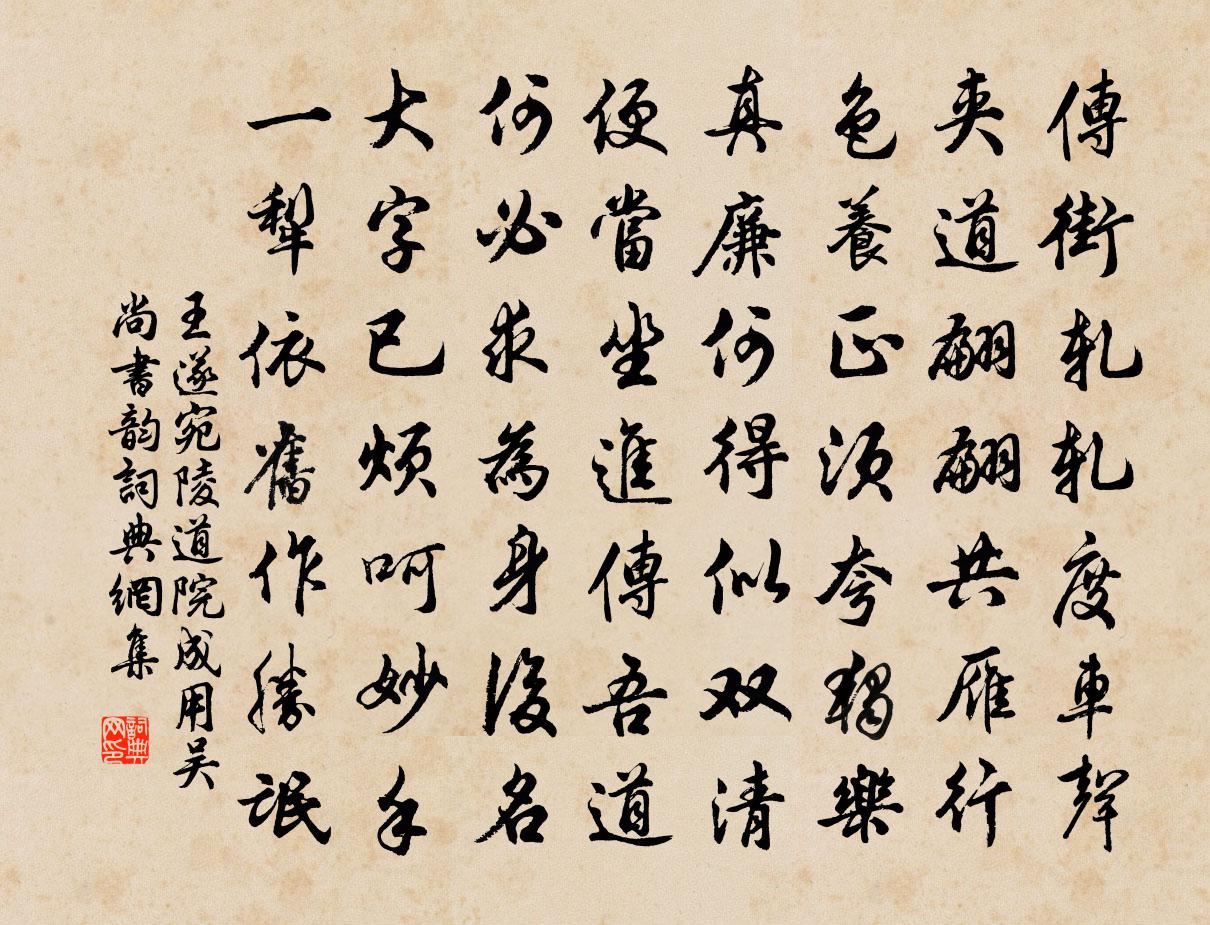 傳街軋軋度車聲
夾道翩翩共雁行
色養正須夸獨樂
真廉何得似双清
便當坐進傳吾道
何必求為身後名
大字已煩呵妙手
一犁依舊作勝氓
王遂宛陵道院成用吴
尚書韵詞典網集
詞典
网印